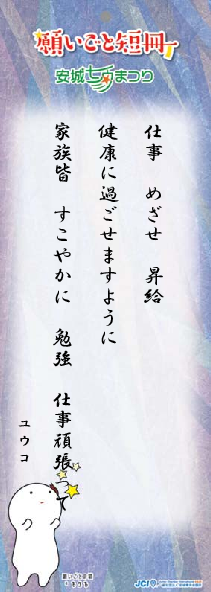 願いごと短冊
安城七夕まつり
仕事 めざせ 昇給
健康に過ごせますように
家族皆 すこやかに 勉強 仕事頑張
ユウコ
願いごと短冊
JCI